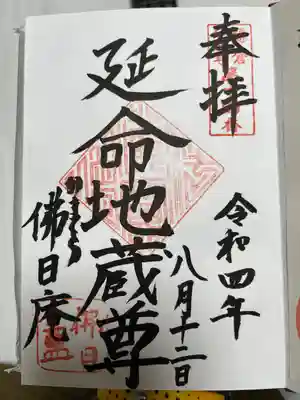 奉拝
令和四年
八月十二日
延命地蔵尊
かまくら
佛日庵